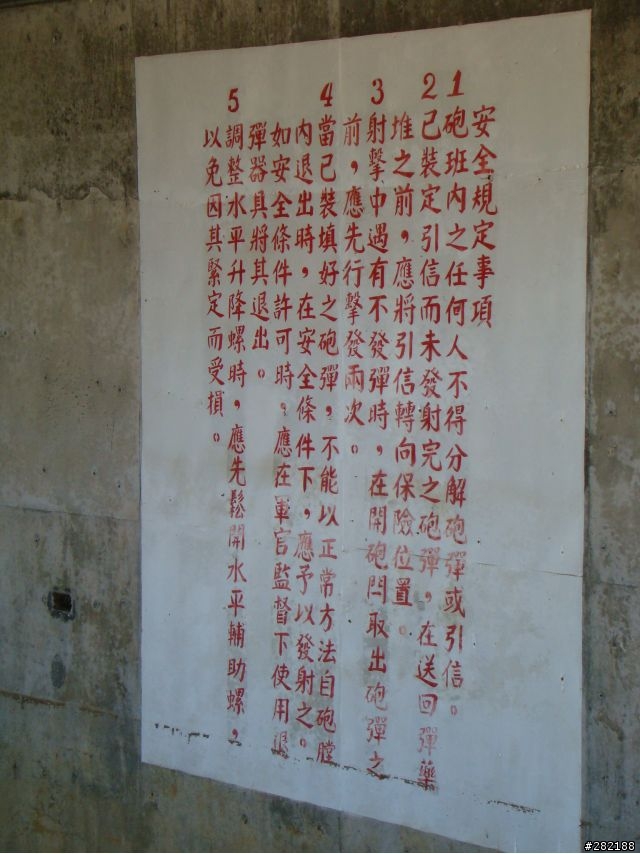 安全規定事項
1砲班內之任何人不得分解砲彈或引信。
2已裝定引信而未發射完之砲彈，在送回彈藥
堆之前，應將引信轉向保險位置。
3射擊中遇有不發彈時，在開砲閂取出砲彈之
前，應先行擊發兩次。
4當已裝填好之砲彈，不能以正常方法自砲膛
內退出時，在安全條件下，應予以發射之。
如安全條件許可時。應在軍官監督下使用退
彈器具將其退出。
5調整水平升降螺時，應先鬆開水平輔助螺，
以免因其緊定而受損。
#282188